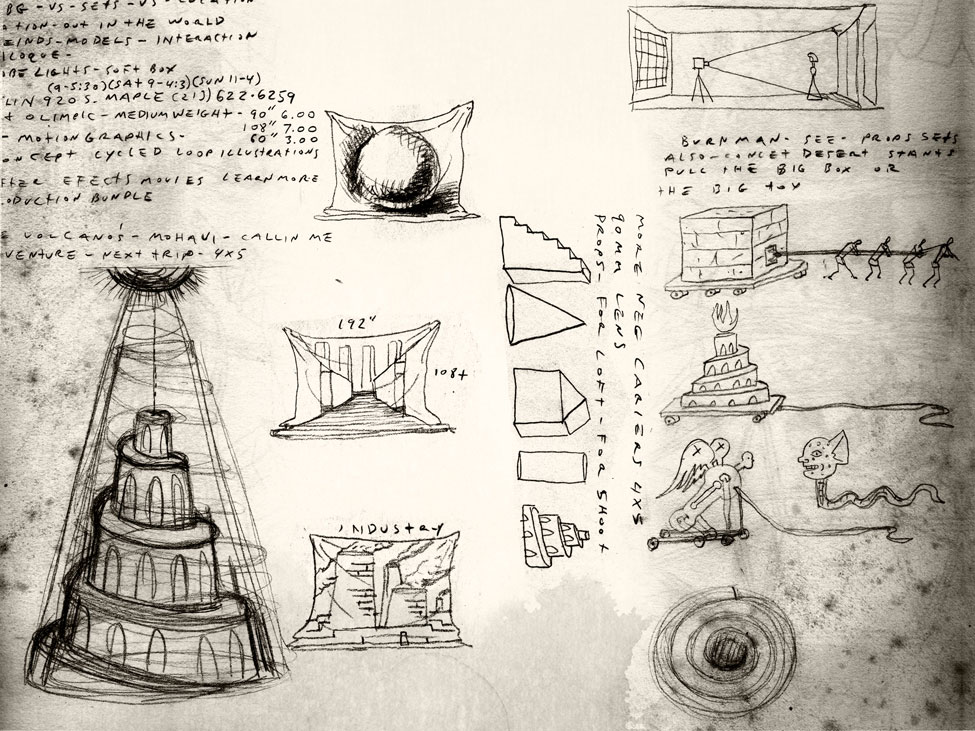 BG - VS - SETS - VS - LOCATION
OTION - OUT IN THE WORLD
EINDS - MODELS - INTERACTION
ILOQUE -
OBE LIGHTS - SOFT BOX
(9-5:30)(SAT 9-4:3)(SUN 11-4)
LIN 920 S. MAPLE (213) 622-6259
OLIMPIC - MEDIUM WEIGHT - 90" 6.00
- MOTION GRAPHICS - 108" 7.00
60" 3.00
ONCEPT CYCLED LOOP ILLUSTRATIONS
FTER EFECTS MOVIES LEARN MORE
ODUCTION BUNDLE
E VOLCANO'S - MOHAVI - CALLIN ME
VENTURE - NEXT TRIP - 4X5
192"
108+
INDUSTRY
MORE NEG CARIERS 4X5
90MM LENS
PROPS - FOR LOFT - FOR SHOOT
BURNMAN - SEE - PROPS SETS
ALSO - CONCET DESERT STANTS
PULL THE BIG BOX OR
THE BIG TOY